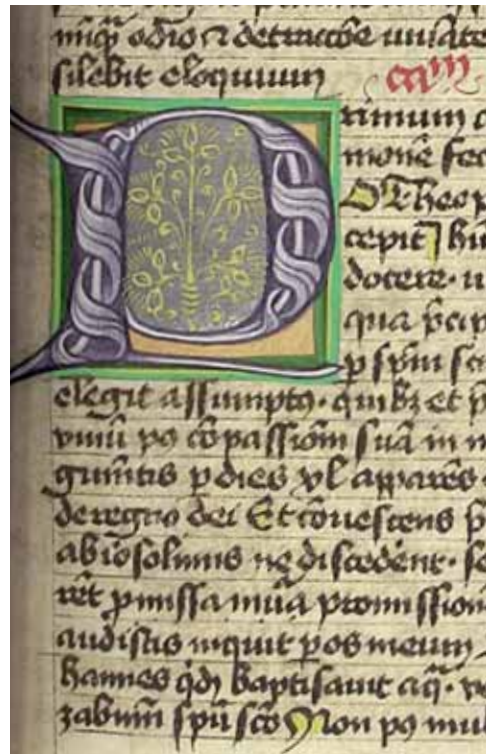 niqȝ odio ⁊ detractōe uniate
silebit eloquium cam
Primum
monē fec
O Theop
cepit hu
docere · u
qua p̄cip
ꝑ sp̄m sc
elegit assumptꝰ · quibꝫ et p
viuū pꝰ cōpassiōm suā in m
gumētis ꝑ dies xl apparēs ·
de regno dei Et cōuescens p
ab ihosolimis ne discedēnt · se
rēt ꝓmissa mūa promission
audistis inquit ꝑ os meum
hannes qdȝ baptisauit aq̄ · v
zabimī spū scō Non pꝰ mul